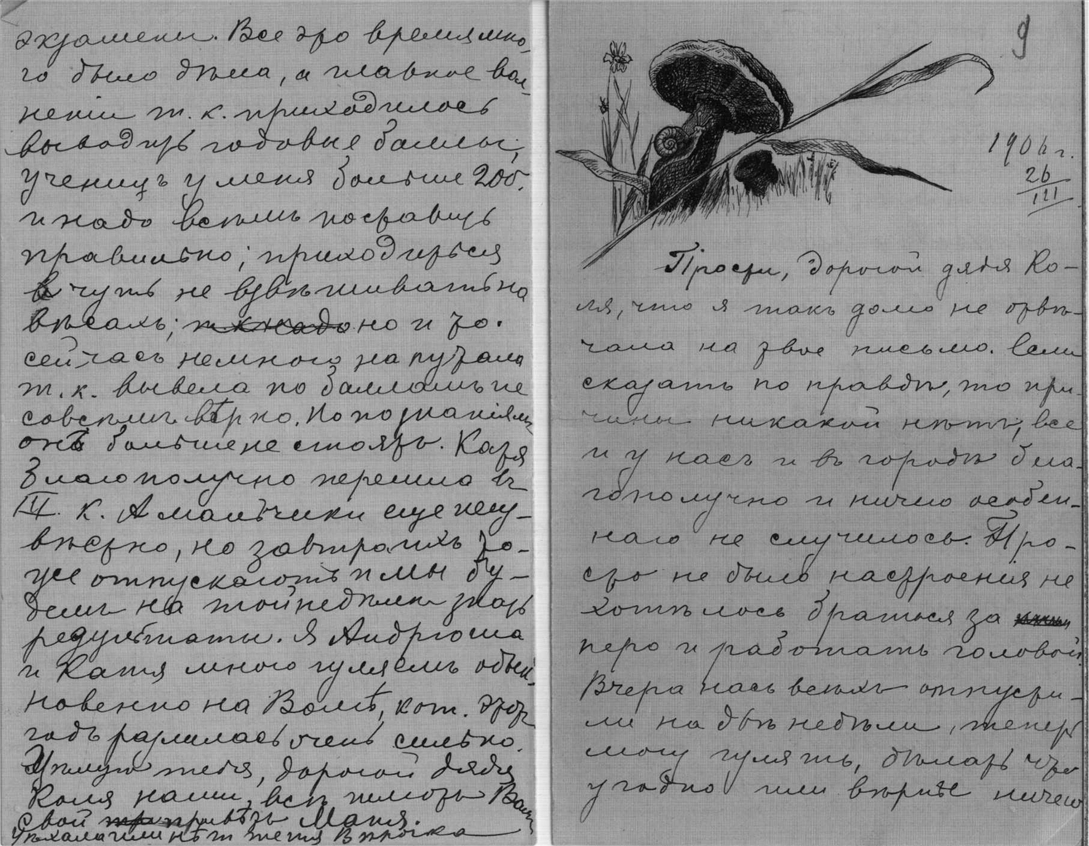 экзамены. Все это время мно-
го было дѣла, а главное вол-
неній т. к. приходилось
выводить годовые баллы,
ученицъ у меня больше 200.
и надо всѣмъ поставить
правильно; приходиться
чуть не взвѣшивать на
вѣсахъ; но и то.
сейчасъ немного напутала
т. к. вывела по балламъ не
совсѣмъ вѣрно. Но по знаніямъ
онѣ больше не стоятъ. Катя
благополучно перешла въ
III. к. А мальчики еще неиз-
вѣстно, но завтра ихъ то-
же отпускаютъ и мы бу-
демъ на той недѣли знать
результаты. Я Андрюша
и Катя много гуляемъ обык-
новенно на Волгѣ, кот. этотъ
годъ разлилась очень сильно.
Цѣлую тебя, дорогой дядя
Коля наши всѣ шлютъ Вамъ
свой привѣтъ Маня.
Уѣхала или нѣт тетя
9
1906 г.
26
III
Прости, дорогой дядя Ко-
ля, что я такъ долго не отвѣ-
чала на твое письмо. Если
сказать по правдѣ, то при-
чины никакой нѣтъ, все
и у насъ и въ городѣ бла-
гополучно и ничего особен-
наго не случилось. Про-
сто не было настроения не
хотѣлось браться за
перо и работать головой
Вчера насъ всѣхъ отпусти-
ли на двѣ недѣли, теперь
могу гулять, дѣлать что
угодно или вѣрнѣе ничего